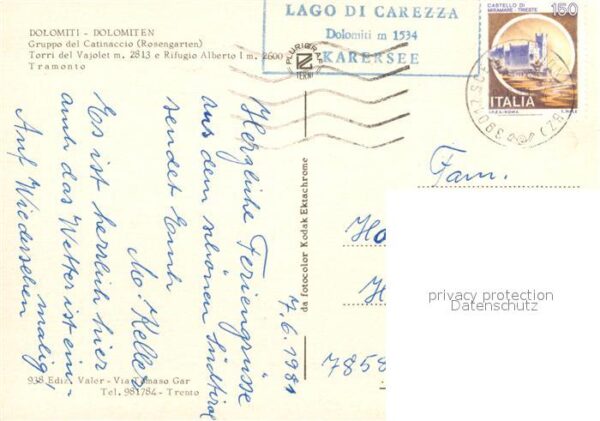 DOLOMITI - DOLOMITEN
Gruppo del Catinaccio (Rosengarten)
Torri del Vajolet m. 2813 e Rifugio Alberto I m. 2600
Tramonto
LAGO DI CAREZZA
Dolomiti m 1534
KARERSEE
PLURIGRAF
TERNI
CASTELLO DI
MIRAMARE - TRIESTE
150
ITALIA
I.P.Z.S.-ROMA
39012
(BZ)
7.6.1981
Herzliche Feriengrüsse
aus dem schönen Südtirol
sendet Euch
M. Keller
Es ist herrlich hier
auch das Wetter ist ein-
malig,
Auf Wiedersehen
da fotocolor Kodak Ektachrome
Fam.
Ho
H
7858
privacy protection
Datenschutz
938 Ediz. Valer - Via Tomaso Gar
Tel. 981784 - Trento